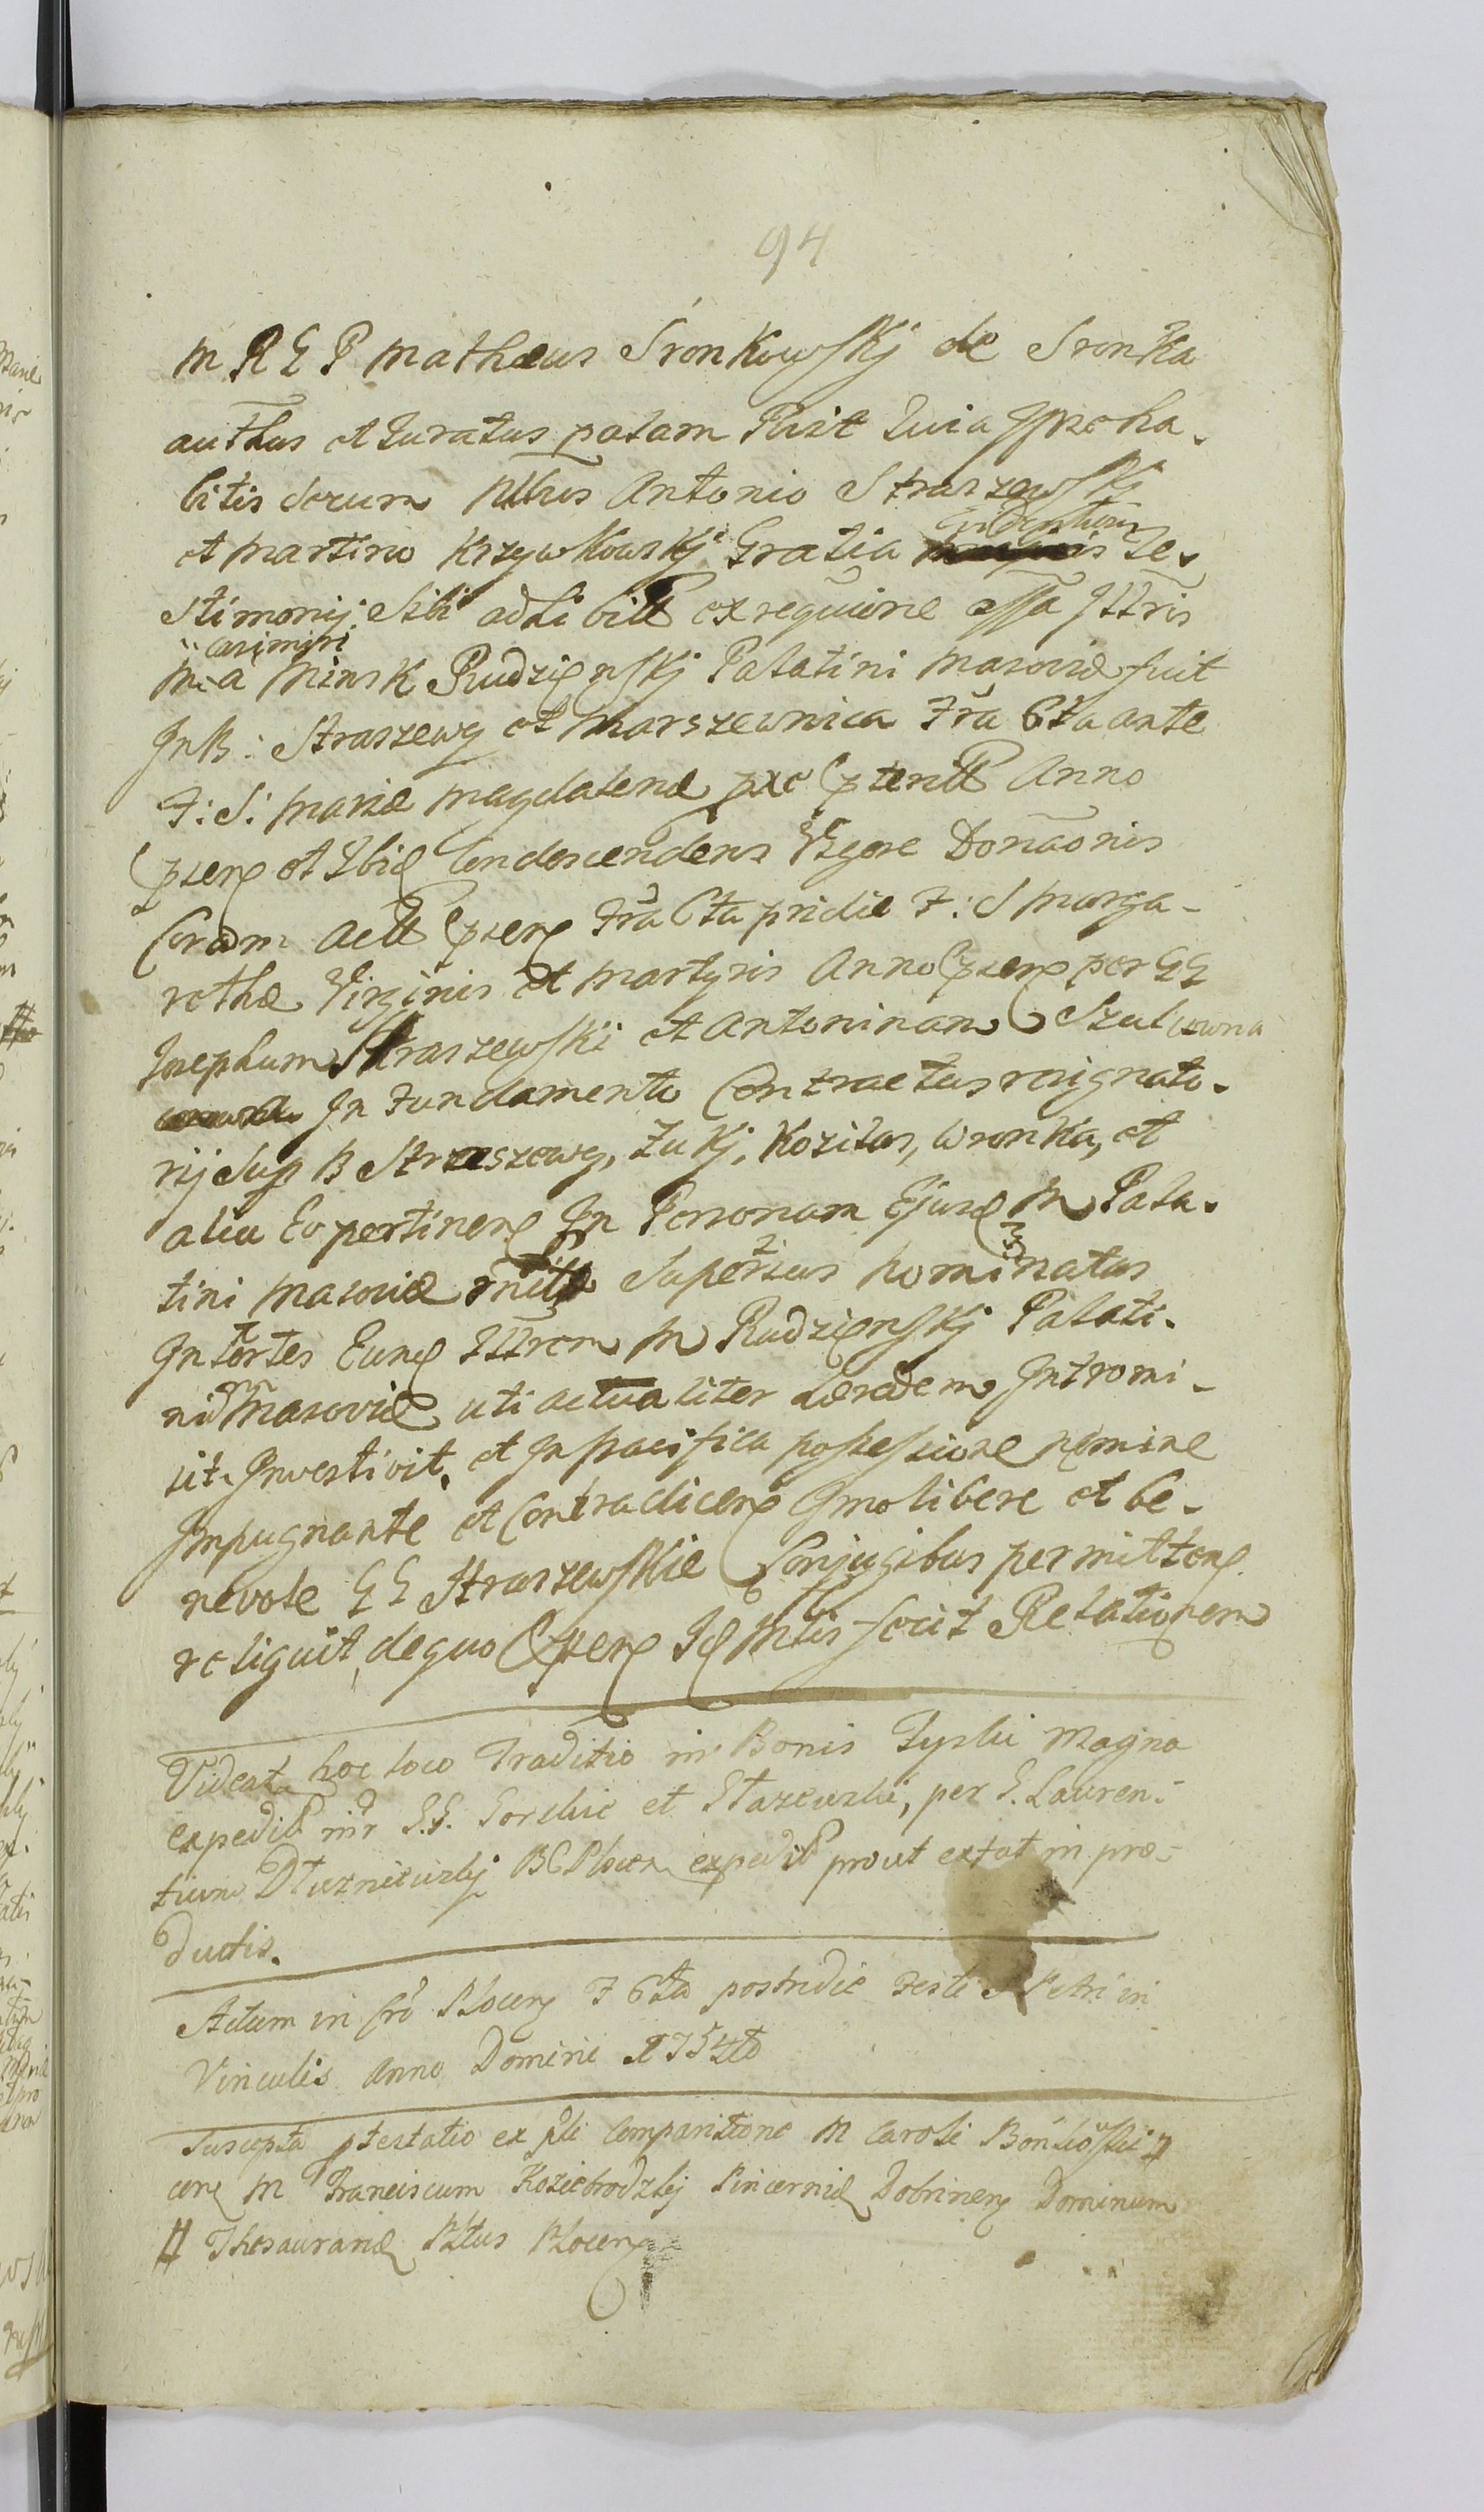 94
M R G P Mathæus Sronkowskj de Sronka
authus et Juratus palam Rect Quia Ipse ha-
bitis secum Nlbus Antonio Straszewskj
et Martino Krzywkowskj Gratia evidentioris Te-
stimonij Sibi adhibitt ex requine Illris
M Casimiri a Minsk Rudzienskj Palatini Masoviæ fuit
In B: Straszewy et Marszewnica Fria 6ta ante
F: S: Mariæ Magdalenæ pxe Anno
et Ibi Condescendens Vigore Donaonis
Coram Actt Fria 6ta pridie F: S Marga-
rethæ Virginis et Martyris Anno per GG
Josephum Straszewski et Antoninam Szulcowna
In Fundamento Contractus resignato-
rij Sup B Straszewy, Zukj, Kozilas, Wronka, et
alia Eo pertinen In Personam Ejusd M Pala-
tini Masoviæ Superius nominatus
In sortes Eund Illrem M Rudzienskj Palati-
num Masoviæ uti actualiter Intromi-
sit Investivit, et In pacifica possessione nemine
Impugnante et Contradicen Imo libere et be-
nevole GG Straszewskie Conjugibus permitten
reliquit, de quo Id Mlis fecit Relationem
Videat hoc loco Traditio in Bonis Zyski Magna
expedit intr G.G. Gorskie et Stazewski, per G. Lauren-
tium Dluzniewskj BC Plocen expedit prout extat in pro-
ductis.
Actum in Cro Plocen F 6ta postridie Festi S Petri in
Vinculis Anno Domini 1754to
Suscepta ptestatio ex pli Comparitione M Caroli Bońkowski #
cen M Franciscum Koziebrodzkj Pincernid Dobrinen Dominum
# Thesaurarid Pltus Plocen